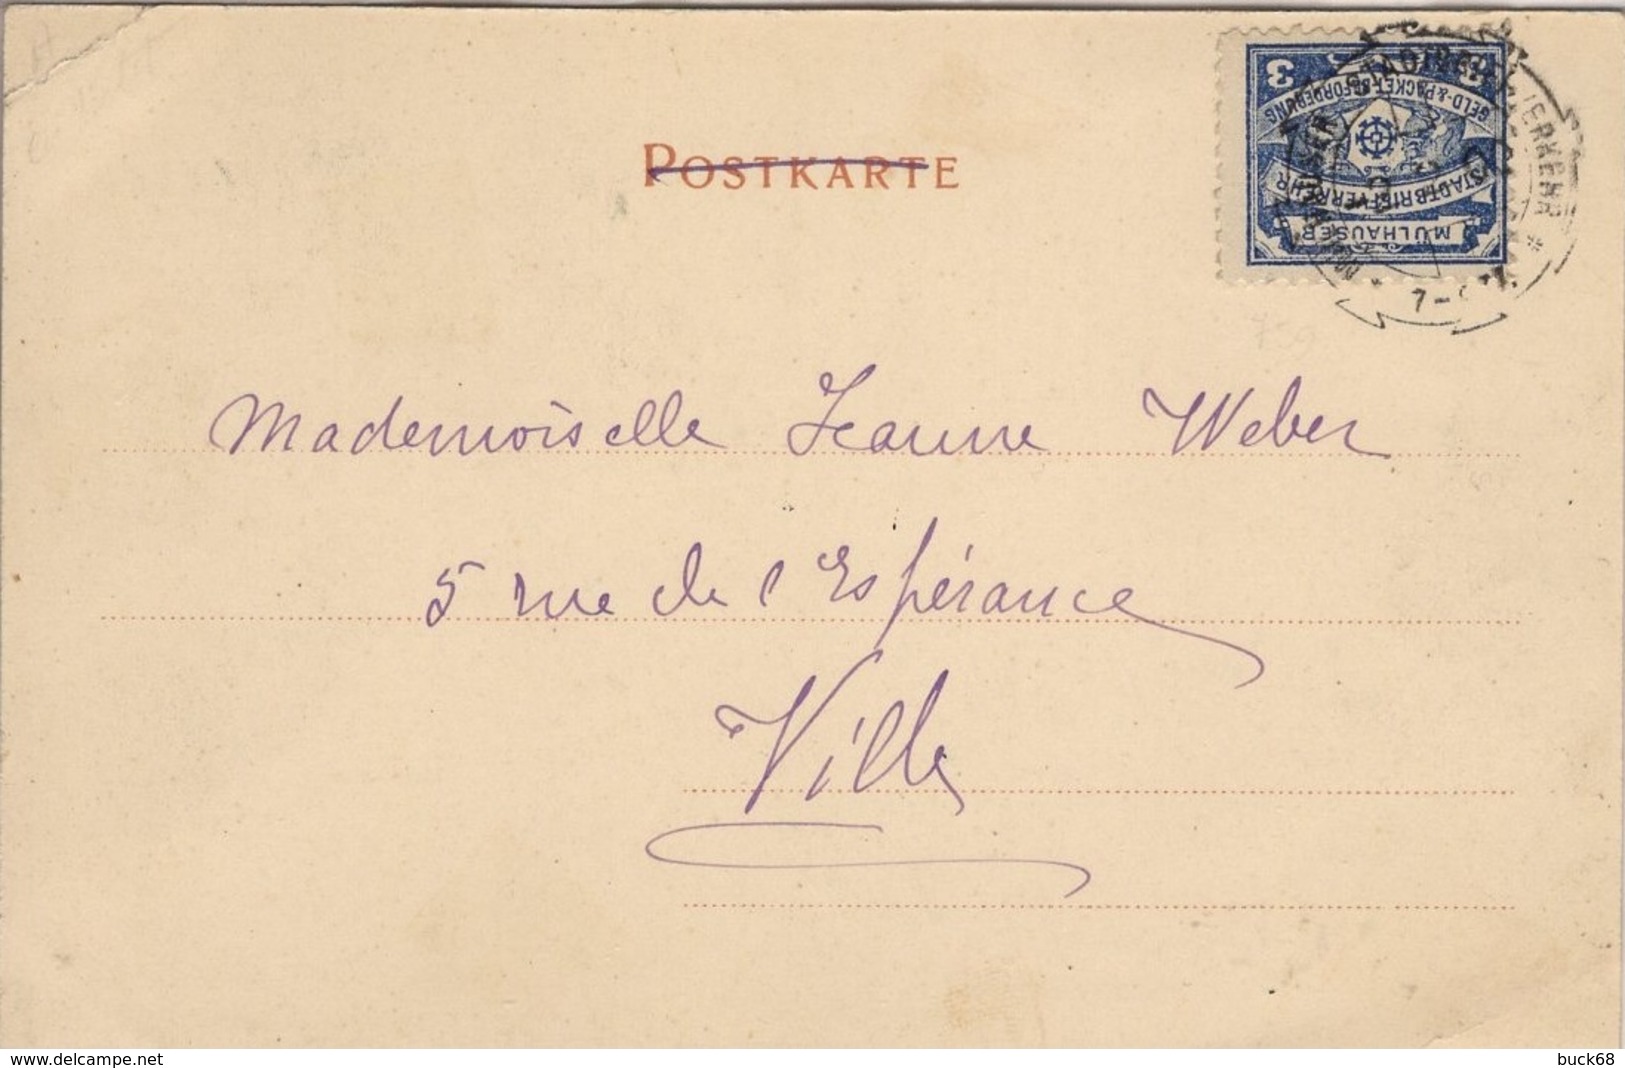 POSTKARTE
3
GELD-&PACKET-BEFÖRDERUNG
STADTBRIEFVERKEHR
MÜLHAUSER
7-
Mademoiselle Jeanne Weber
5 rue de l'Espérance
Ville
www.delcampe.net
buck68